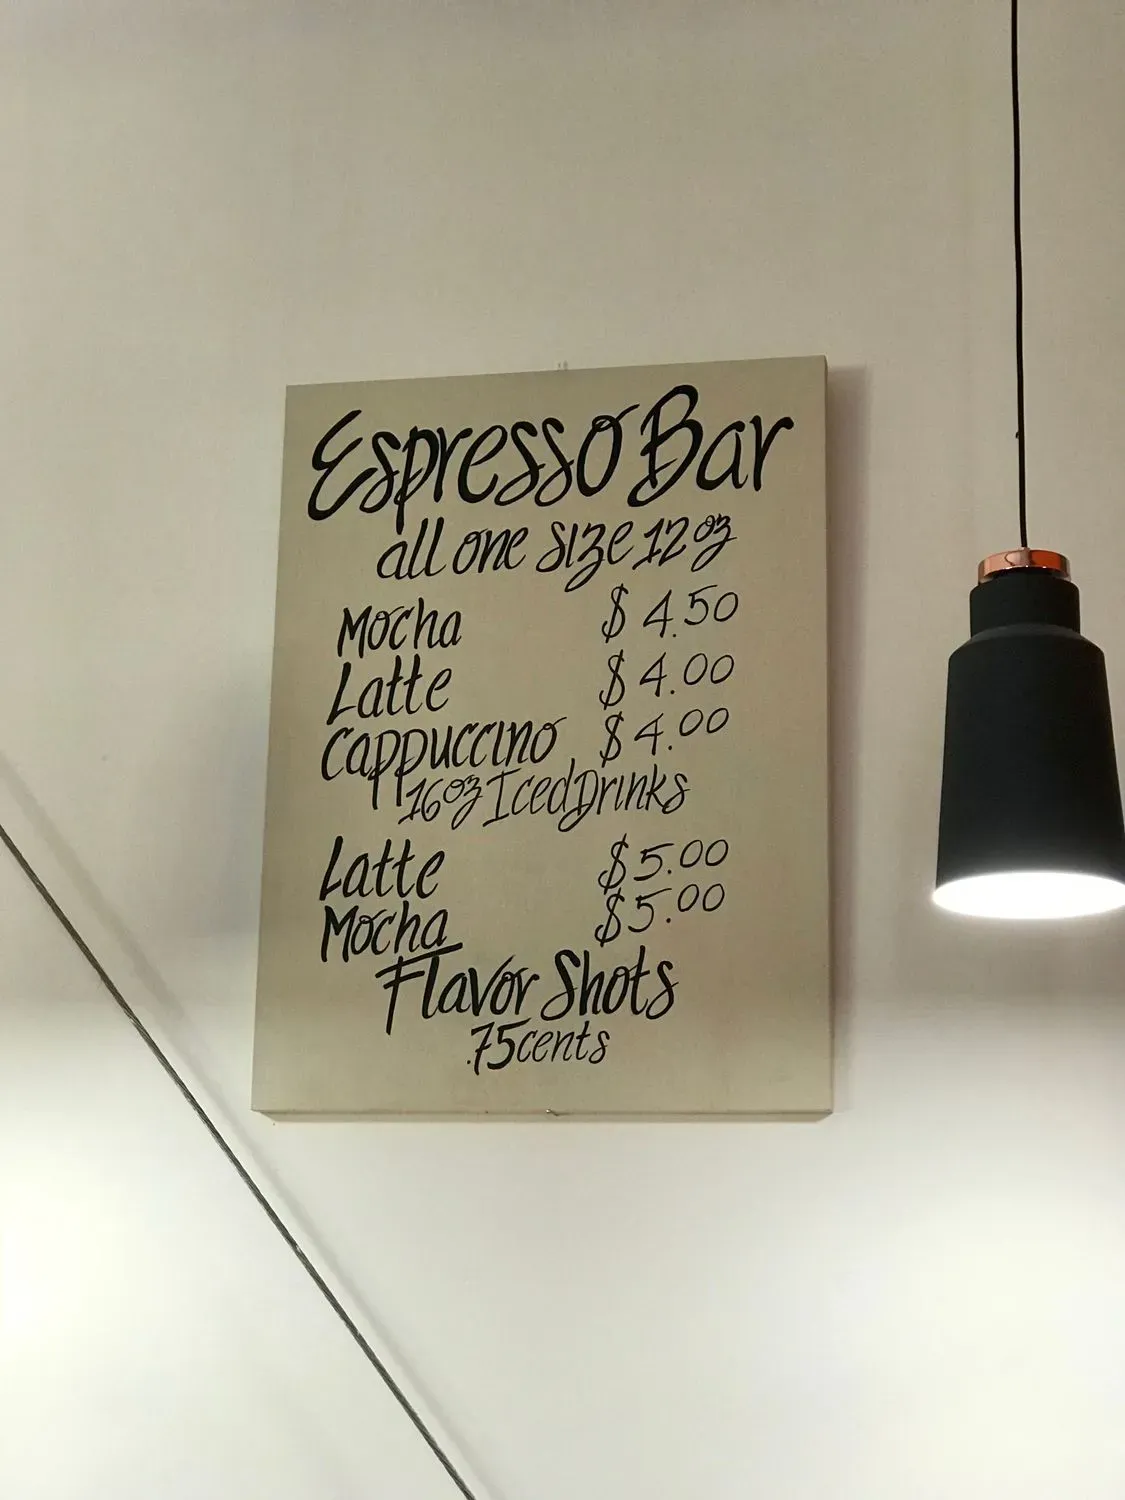 Espresso Bar
all one size 12oz
Mocha $4.50
Latte $4.00
Cappuccino $4.00
16oz Iced Drinks
Latte $5.00
Mocha $5.00
Flavor Shots
.75cents